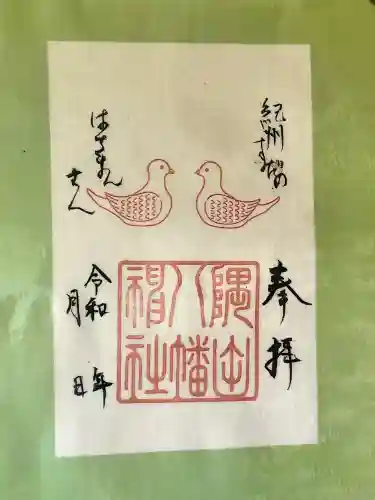 紀州
奉拝
隅田
八幡
神社
はちまん
さん
令和 年
月 日